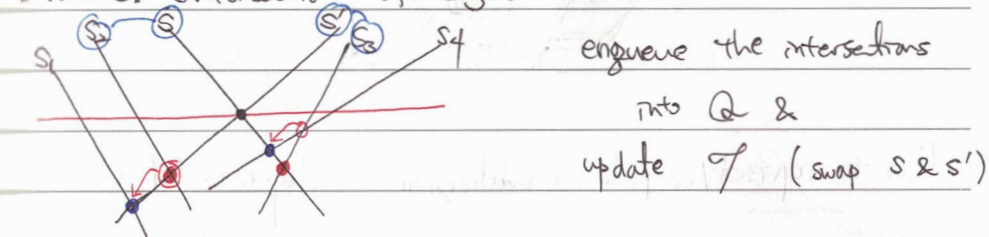 S₁ S₂ S S' S₃ S4
enqueue the intersections
into Q &
update 𝒯 (swap S & S')